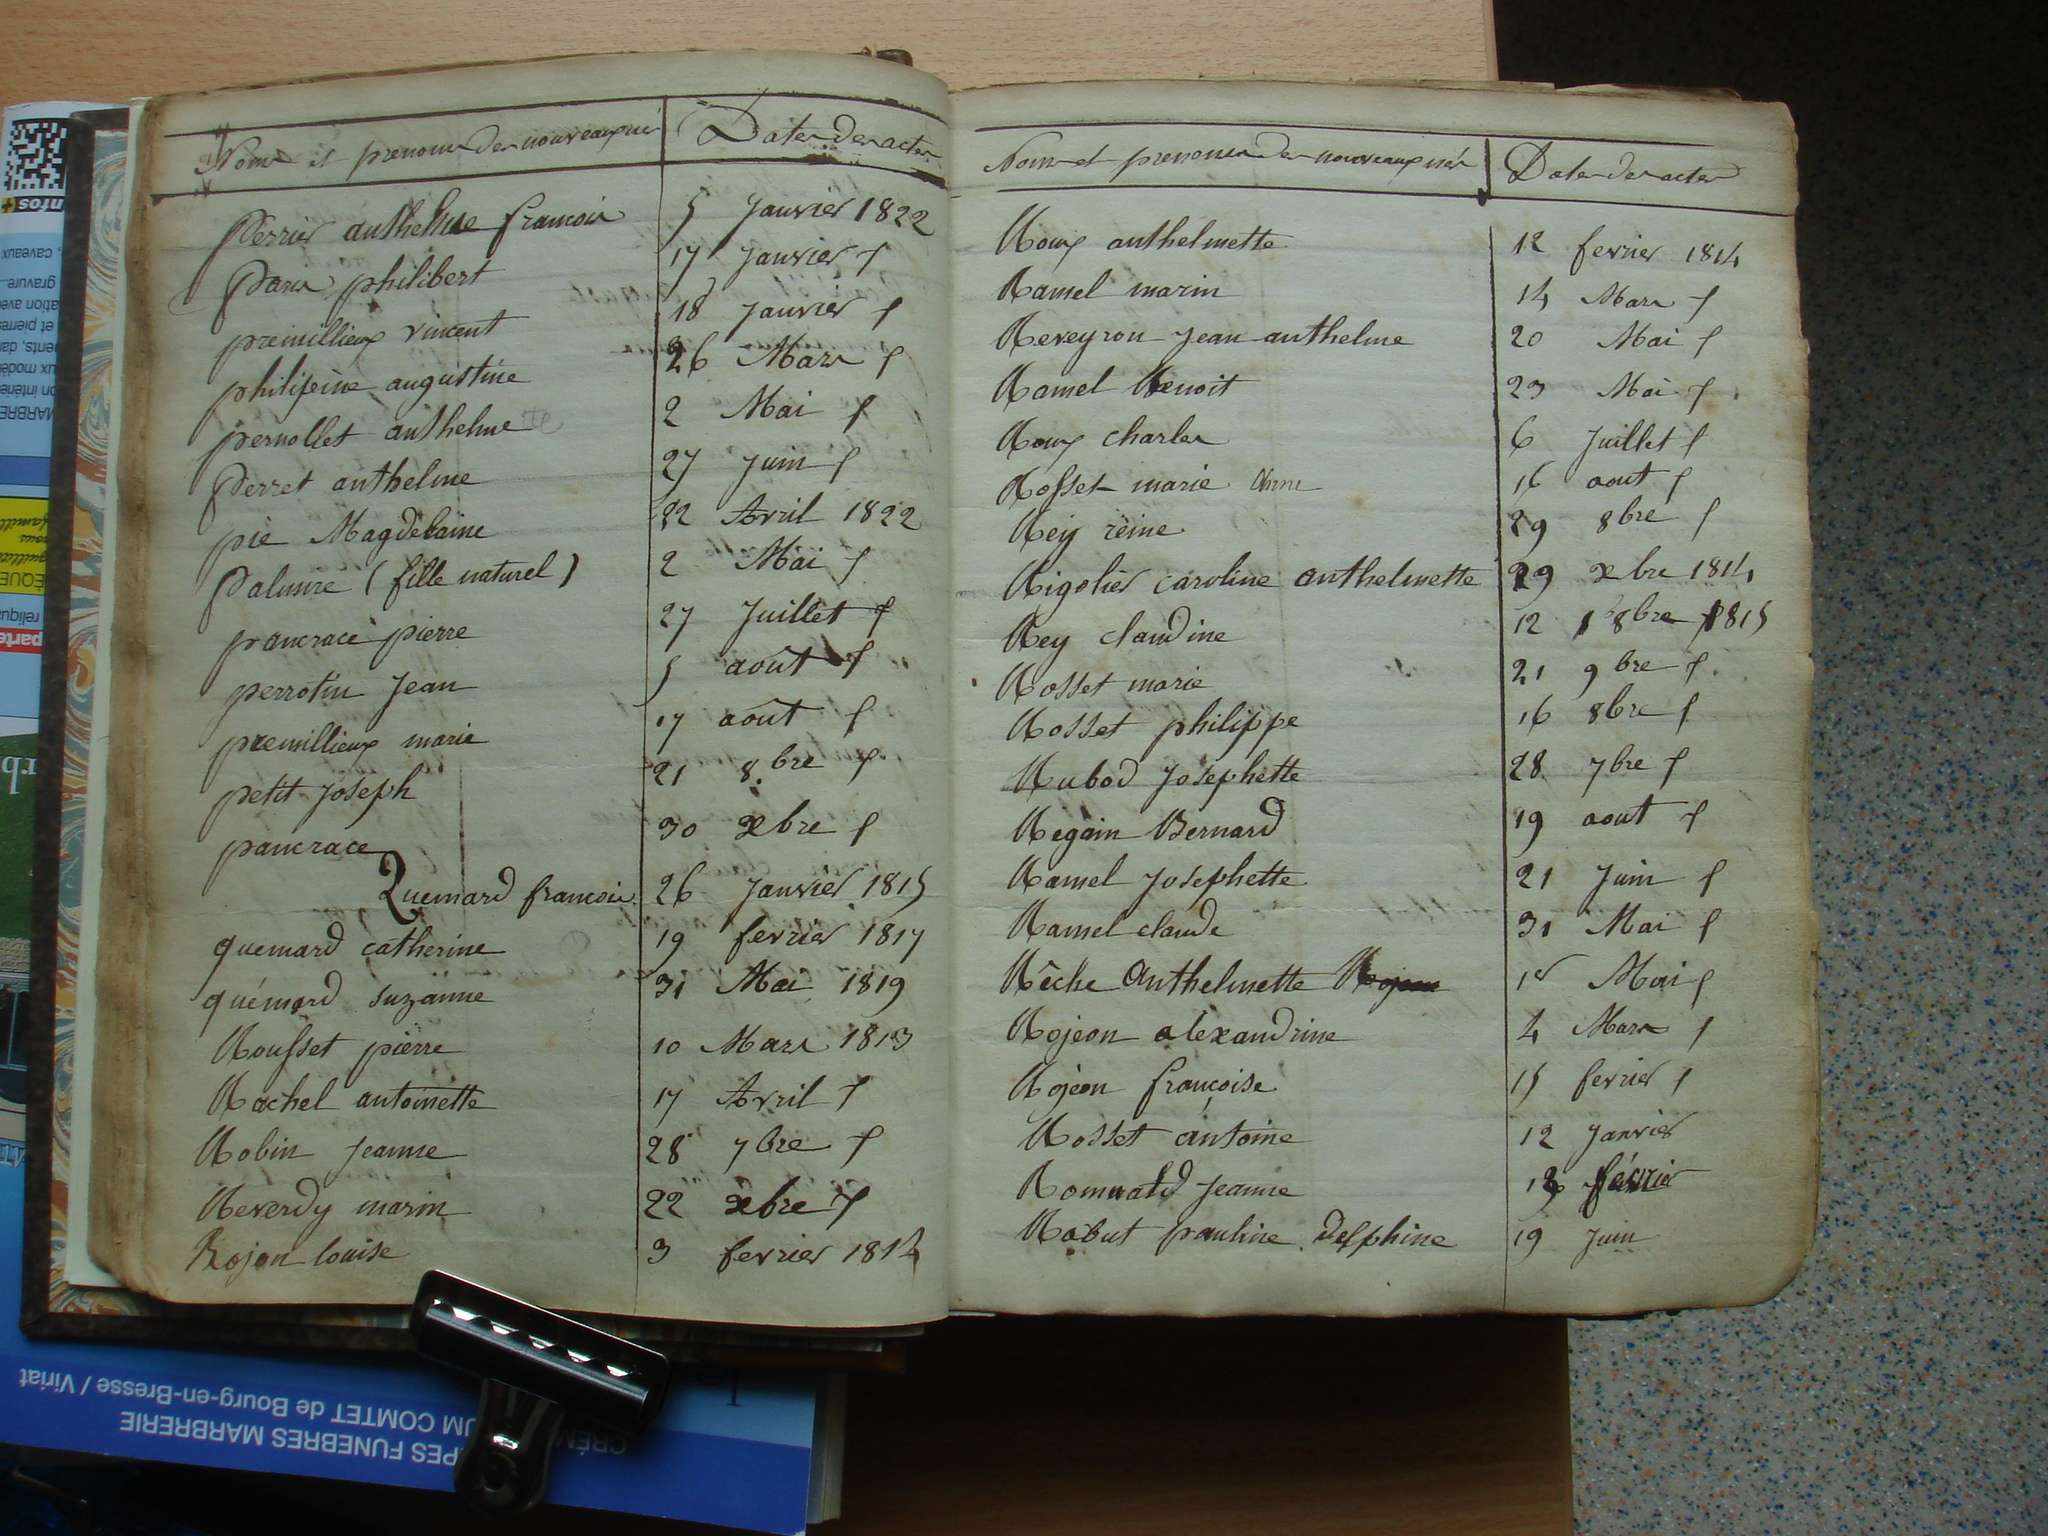 Noms et prenoms des nouveaux nés Dates des actes
Perrier anthelme francois 5 Janvier 1822
Paris philibert 17 Janvier f
premillieux vincent 18 Janvier f
philipine augustine 26 Mars f
pernollet anthelme te 2 Mai f
Perret anthelme 27 Juin f
pie Magdelaine 22 Avril 1822
Palmire (fille naturel) 2 Mai f
pancrace pierre 27 Juillet f
perrotin Jean 5 août f
premillieux marie 17 août f
petit Joseph 21 8bre f
pancrace 30 xbre f
Quemard francois 26 Janvier 1815
quemard catherine 19 fevrier 1817
quémard suzanne 31 Mai 1819
Rousset pierre 10 Mars 1813
Rachel antoinette 17 Avril f
Robin Jeanne 28 7bre f
Reverdy marin 22 xbre f
Rojon louise 3 fevrier 1814
Noms et prenoms des nouveaux nés Dates des actes
Roux anthelmette 12 fevrier 1814
Ramel marin 14 Mars f
Reveyron Jean anthelme 20 Mai f
Ramel Benoit 23 Mai f
Roux charles 6 Juillet f
Rosset marie Anne 16 aout f
Rey reine 29 8bre f
Rigolier caroline anthelmette 29 xbre 1814
Rey claudine 12 8bre 1815
Rosset marie 21 9bre f
Rosset philippe 16 8bre f
Rubod Josephette 28 7bre f
Regain Bernard 19 aout f
Ramel Josephette 21 Juin f
Ramel claude 31 Mai f
Rêche Anthelmette Mai f
Rojeon alexandrine 4 Mars f
Rojeon françoise 15 fevrier f
Rosset antoine 12 Janvier
Romuald Jeanne février
Robut pauline Delphine 19 Juin
infos+
caveaux
gravure
MARBRE
PES FUNEBRES MARBRERIE
UM COMTET de Bourg-en-Bresse / Viriat